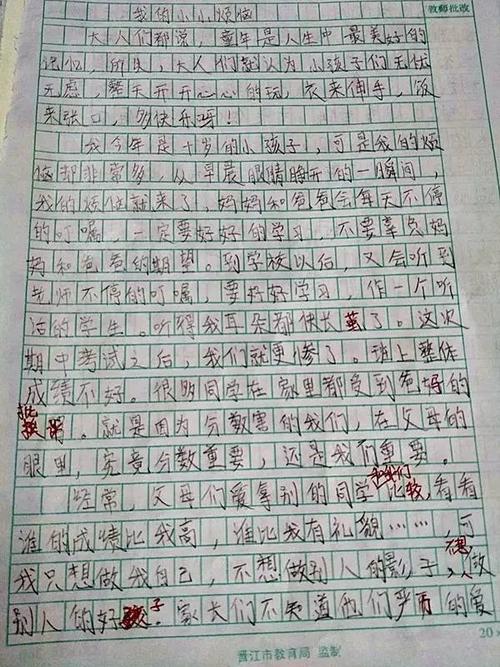 教师批改
我的小小烦恼
大人们都说，童年是人生中最美好的
记忆，所以，大人们就认为小孩子们无忧
无虑，整天开开心心的玩，衣来伸手，饭
来张口，多快乐呀！
我今年是十岁的小孩子，可是我的烦
恼却非常多，从早晨眼睛睁开的一瞬间，
我的烦恼就来了，妈妈和爸爸会每天不停
的叮嘱，一定要好好的学习，不要辜负妈
妈和爸爸的期望。到学校以后，又会听到
老师不停的叮嘱，要好好学习，作一个听
话的学生。听得我耳朵都快长茧了。这次
期中考试之后，我们就更惨了。班上整体
成绩不好。很多同学在家里都受到爸妈的
批评。就是因为分数害的我们，在父母的
眼里，究竟分数重要，还是我们重要。
经常，父母们爱拿别的同学和我们比较，看看
谁的成绩比我高，谁比我有礼貌……，可
我只想做我自己，不想做别人的影子，不想做
别人的好孩子。家长们不知道他们严而的爱
20×
晋江市教育局 监制